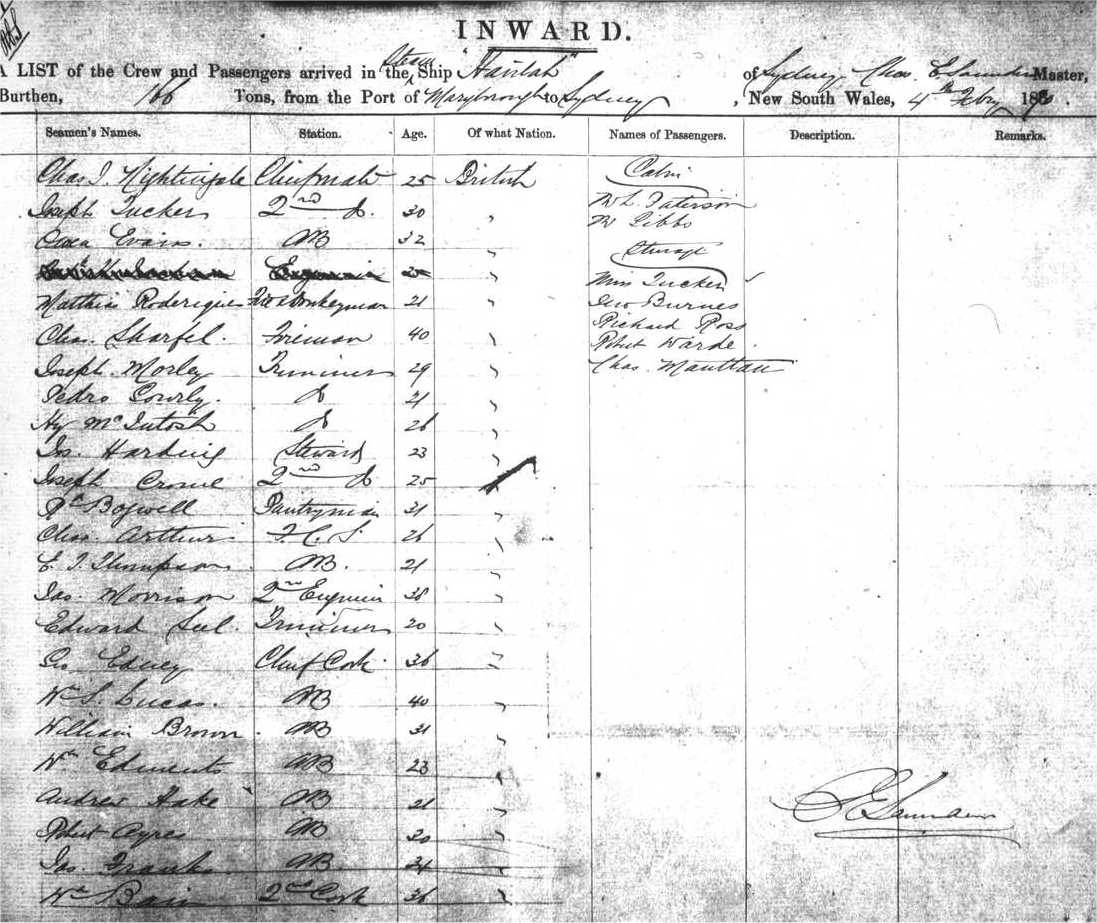 INWARD.
A LIST of the Crew and Passengers arrived in the Steam Ship of Sydney, Chas. E. Saunders Master,
Burthen, 166 Tons, from the Port of Maryborough to Sydney, New South Wales, 4th Feby 18
Seamen's Names. Station. Age. Of what Nation. Names of Passengers. Description. Remarks.
Chas J. Nightingale Chief mate 25 British Cabin
Joseph Tucker 2nd Do. 30 " Mr L. Paterson
Mr Gibbs
Owen Evans. AB 32 "
Steerage
Miss Tucker
Matthias Roderigues 21 " Jno Burnes
Richard Ross
Chas. Sharfel. Fireman 40 " Robert Warde.
Joseph Morley Trimmer 29 " Chas.
Pedro Do 21 "
Hy McIntosh Do 26 "
Jos. Harding Steward 23 "
Joseph 2nd Do 25
Bagwell Pantryman 31 "
Chas Arthur F.C.S. 26 "
E. J. Thompson AB. 21 "
Jas. Morrison 2nd Engineer 38 "
Edward Trimmer 20 "
Geo Edney Chief Cook 36 "
Wm S. Lucas. AB 40 "
William Brown AB 31 "
Wm Edments AB 23 "
Andrew Hake AB 21 "
C E Saunders
Robert Ayres AB 20 "
Jas. Franks AB 34 "
Wm Bain 2nd Cook 36 "